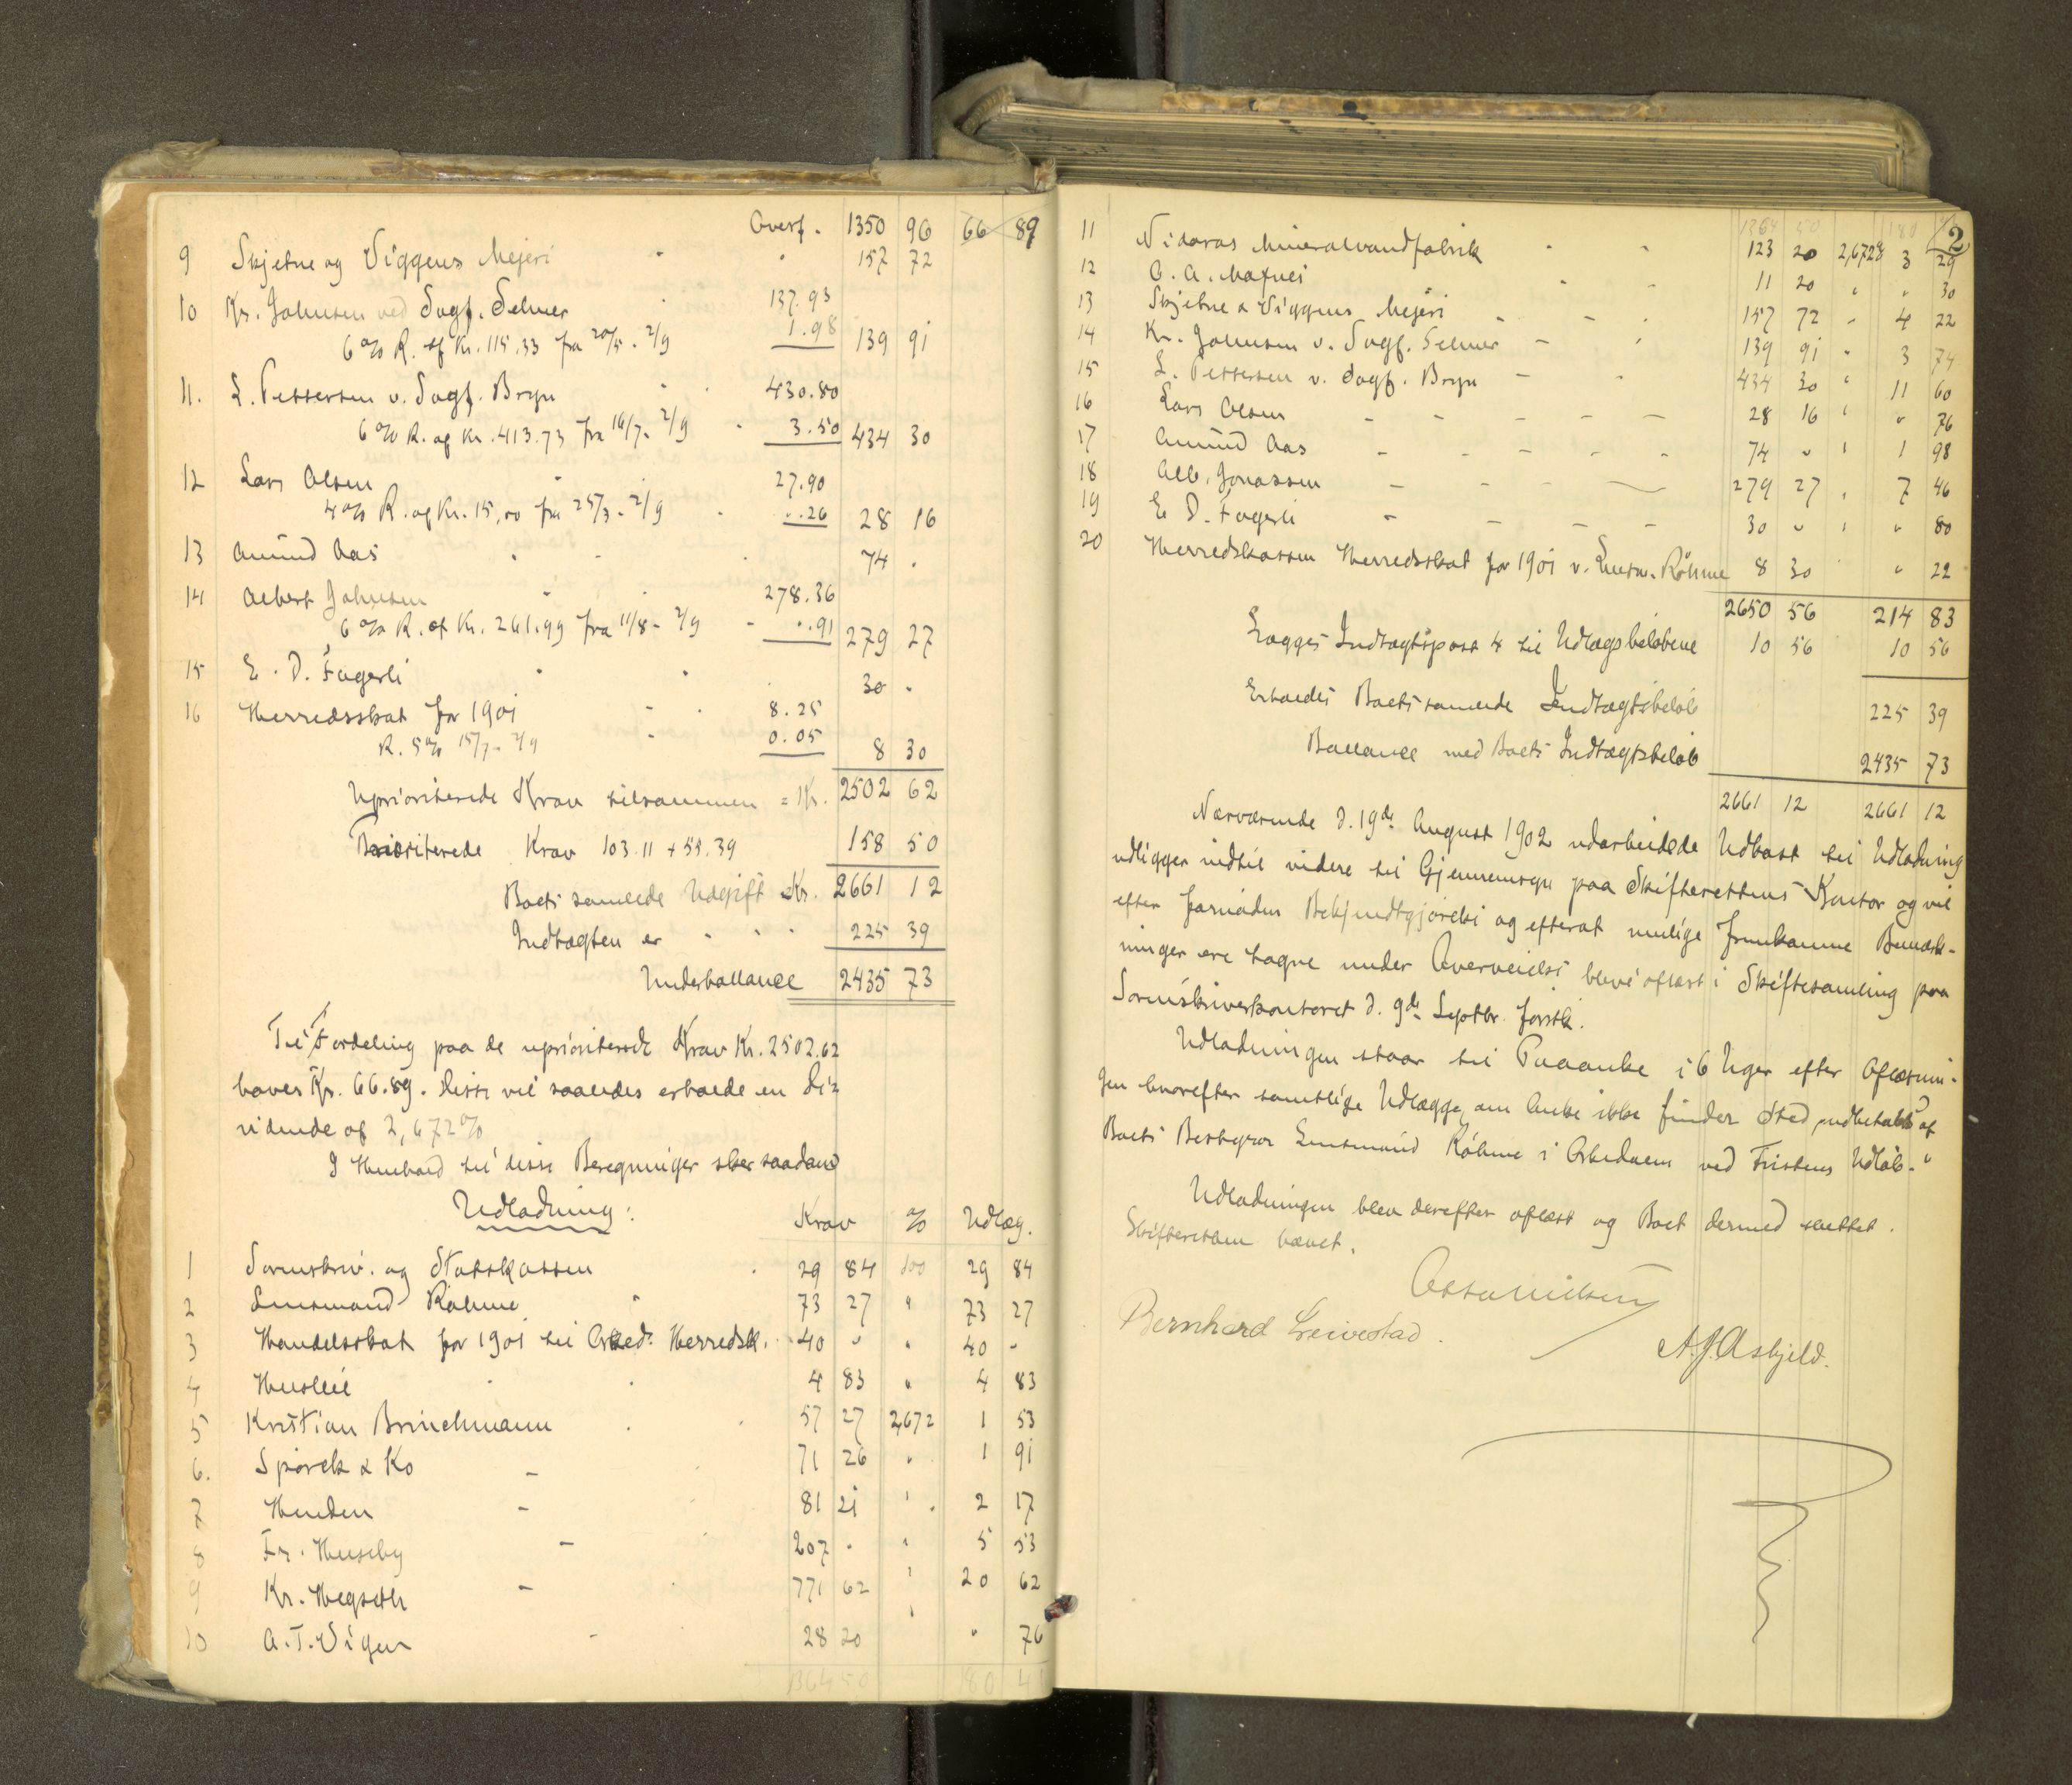 Overf. 1350 96 66 89
9 Skjetne og Viggens Mejeri " 157 72
10 Kr. Johnsen ved Sagf. Selmer 137.93
6 % R. af Kr. 115.33 fra 20/5 - 2/9 1.98 139 91
11. L. Pettersen v. Sagf. Bryn 430.80
6 % R. af Kr. 413.73 fra 16/7 - 2/9 3.50 434 30
12 Lars Olsen 27.90
4 % R. af Kr. 15,00 fra 25/3 - 2/9 ".26 28 16
13 Amund Aas 74 "
14 Albert Johnsen 278.36
6 % R. af Kr. 261.99 fra 11/8 - 2/9 ".91 279 27
15 E. D. Fagerli 30 "
16 Herredsskat for 1901 8.25
R. 5 % 15/7 - 2/9 0.05 8 30
Uprioriterede Krav tilsammen = Kr. 2502 62
Prioriterede Krav 103.11 + 55.39 158 50
Boets samlede Udgift Kr. 2661 12
Indtægten er 225 39
Underballance 2435 73
Til Fordeling paa de uprioriterede Krav Kr. 2502.62
haves Kr. 66.89. Disse vil saaledes erholde en Di=
vidende af 2,672 %
I Henhold til disse Beregninger sker saadan
Udlodning: Krav % Udlæg.
1 Sorenskriv. og Statskassen 29 84 100 29 84
2 Lensmand Röhme 73 27 " 73 27
3 Handelsskat for 1901 til Orked. Herredsk. 40 " " 40 -
4 Husleie 4 83 " 4 83
5 Kristian Brinchmann 57 27 2,672 1 53
6. Spörck & Ko 71 26 " 1 91
7 Huden 81 21 " 2 17
8 Fr. Huseby 207 " " 5 53
9 Kr. Hegseth 771 62 " 20 62
10 A. T. Vigen 28 20 " " 76
1364 50 180 41
1364 50 180 41
2
11 Nidaros Mineralvandfabrik 123 20 2,6728 3 29
12 O. A. Moxnes 11 20 " " 30
13 Skjetne & Viggens Mejeri 157 72 " 4 22
14 Kr. Johnsen v. Sagf. Selmer 139 91 " 3 74
15 L. Pettersen v. Sagf. Bryn 434 30 " 11 60
16 Lars Olsen 28 16 " " 76
17 Amund Aas 74 " " 1 98
18 Alb. Jonassen 279 27 " 7 46
19 E D. Fagerli 30 " " " 80
20 Herredskassen Herredsskat for 1901 v. Lensm. Röhme 8 30 " 22
2650 56 214 83
Lægges Indtægtspost 4 til Udlægsbeløbene 10 56 10 56
Erholdes Boets samlede Indtægtsbeløb 225 39
Ballance med Boets Indtægtsbeløb 2435 73
2661 12 2661 12
Nærværende d. 19de August 1902 udarbeidede Udkast til Udlodning
udligger indtil videre til Gjennemsyn paa Skifterettens Kontor og vil
efter forinden Bekjendtgjørelse og efterat mulige fremkomne Bemærk-
ninger ere tagne under Overveielse blive oplæst i Skiftesamling paa
Sorenskriverkontoret d. 9de Septbr. førstk.
Udlodningen staar til Paaanke i 6 Uger efter Oplæsnin-
gen hvorefter samtlige Udlægge, om Anke ikke finder Sted, udbetales af
Boets Bestyrer Lensmand Röhme i Orkedalen ved Fristens Udløb."
Udlodningen blev derefter oplæst og Boet dermed sluttet.
Skifteretten hævet.
Bernhard Leivestad. A. J. Askjeld.